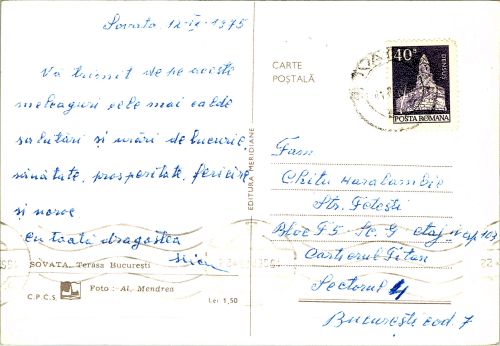 Sovata 12-IX-1975
Vă trimit de pe aceste
meleaguri cele mai calde
salutări și urări de bucurie,
sănătate, prosperitate, fericire
și noroc
cu toată dragostea
SOVATA. Terasa București
C.P.C.S.
Foto : Al. Mendrea
Lei 1,50
EDITURA MERIDIANE
CARTE
POȘTALĂ
40
DENSUȘ
POSTA ROMANA
Fam
Chitu Haralambie
Str. Fetești
Bloc F5 Sc. G etaj
Cartierul Titan
Sectorul 4
București cod. 7